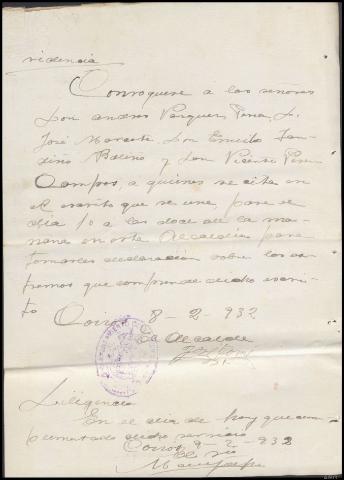 videncia
Convoquese a los señores
Don Andres Vazquez Perez, D.
José Don Emilio
y Don Vicente Perez
Campos, a quienes se cita en
el escrito que se une, para el
dia 10 a las doce de la ma-
ñana en esta Alcaldia para
tomarles declaración sobre los ex-
tremos que comprende dicho escri-
to
8-2-932
El Alcalde
Diligencia
En el dia de hoy queda cum-
plimentado dicho servicio
9-2-932